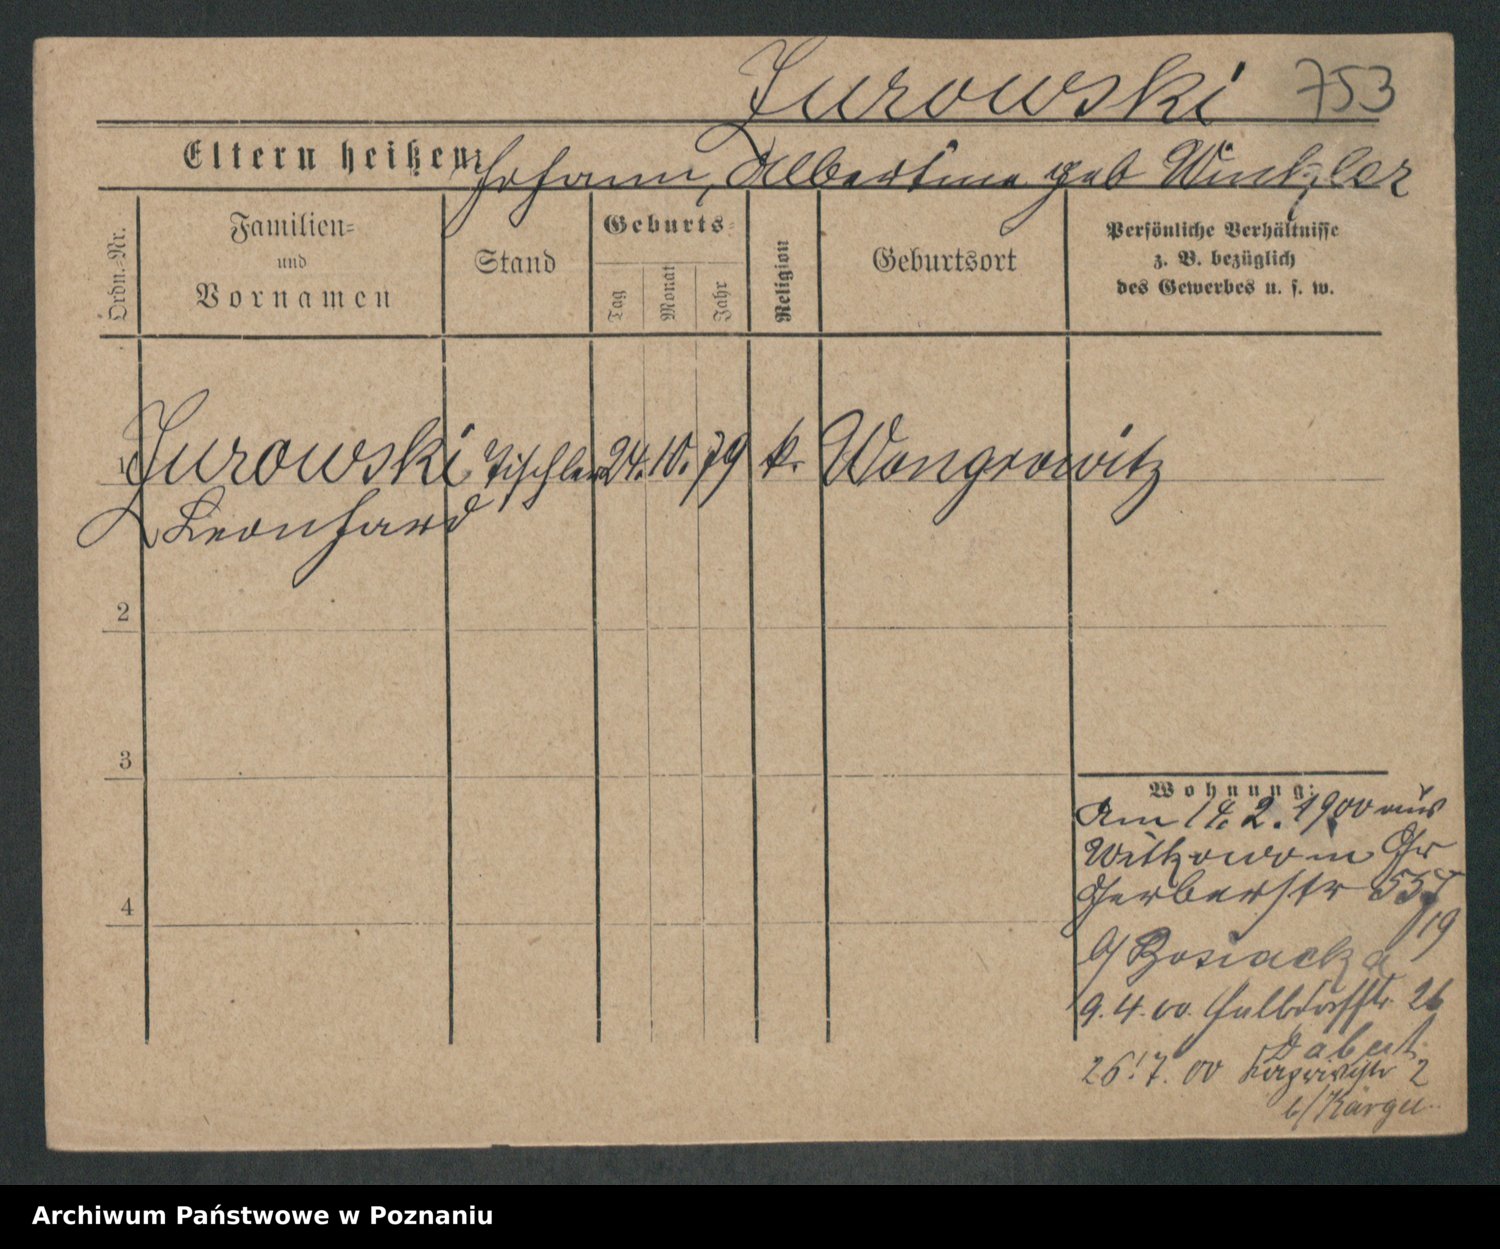 Jurowski 753
Eltern heißen: Johann, Albertine geb Winkler
Ordn.-Nr.
Familien-
und
Vornamen
Stand
Geburts-
Tag
Monat
Jahr
Religion
Geburtsort
Persönliche Verhältnisse
z. B. bezüglich
des Gewerbes u. s. w.
1 Jurowski Tischler 24. 10. 79 k. Wongrowitz
Leonhard
2
3
4
Wohnung:
Am 14. 2. 1900 aus
Witkowo in Gr
Gerberstr
19
b/
9. 4. 00. Halbdorfstr. 26
26. 7. 00 2
b/
Archiwum Państwowe w Poznaniu